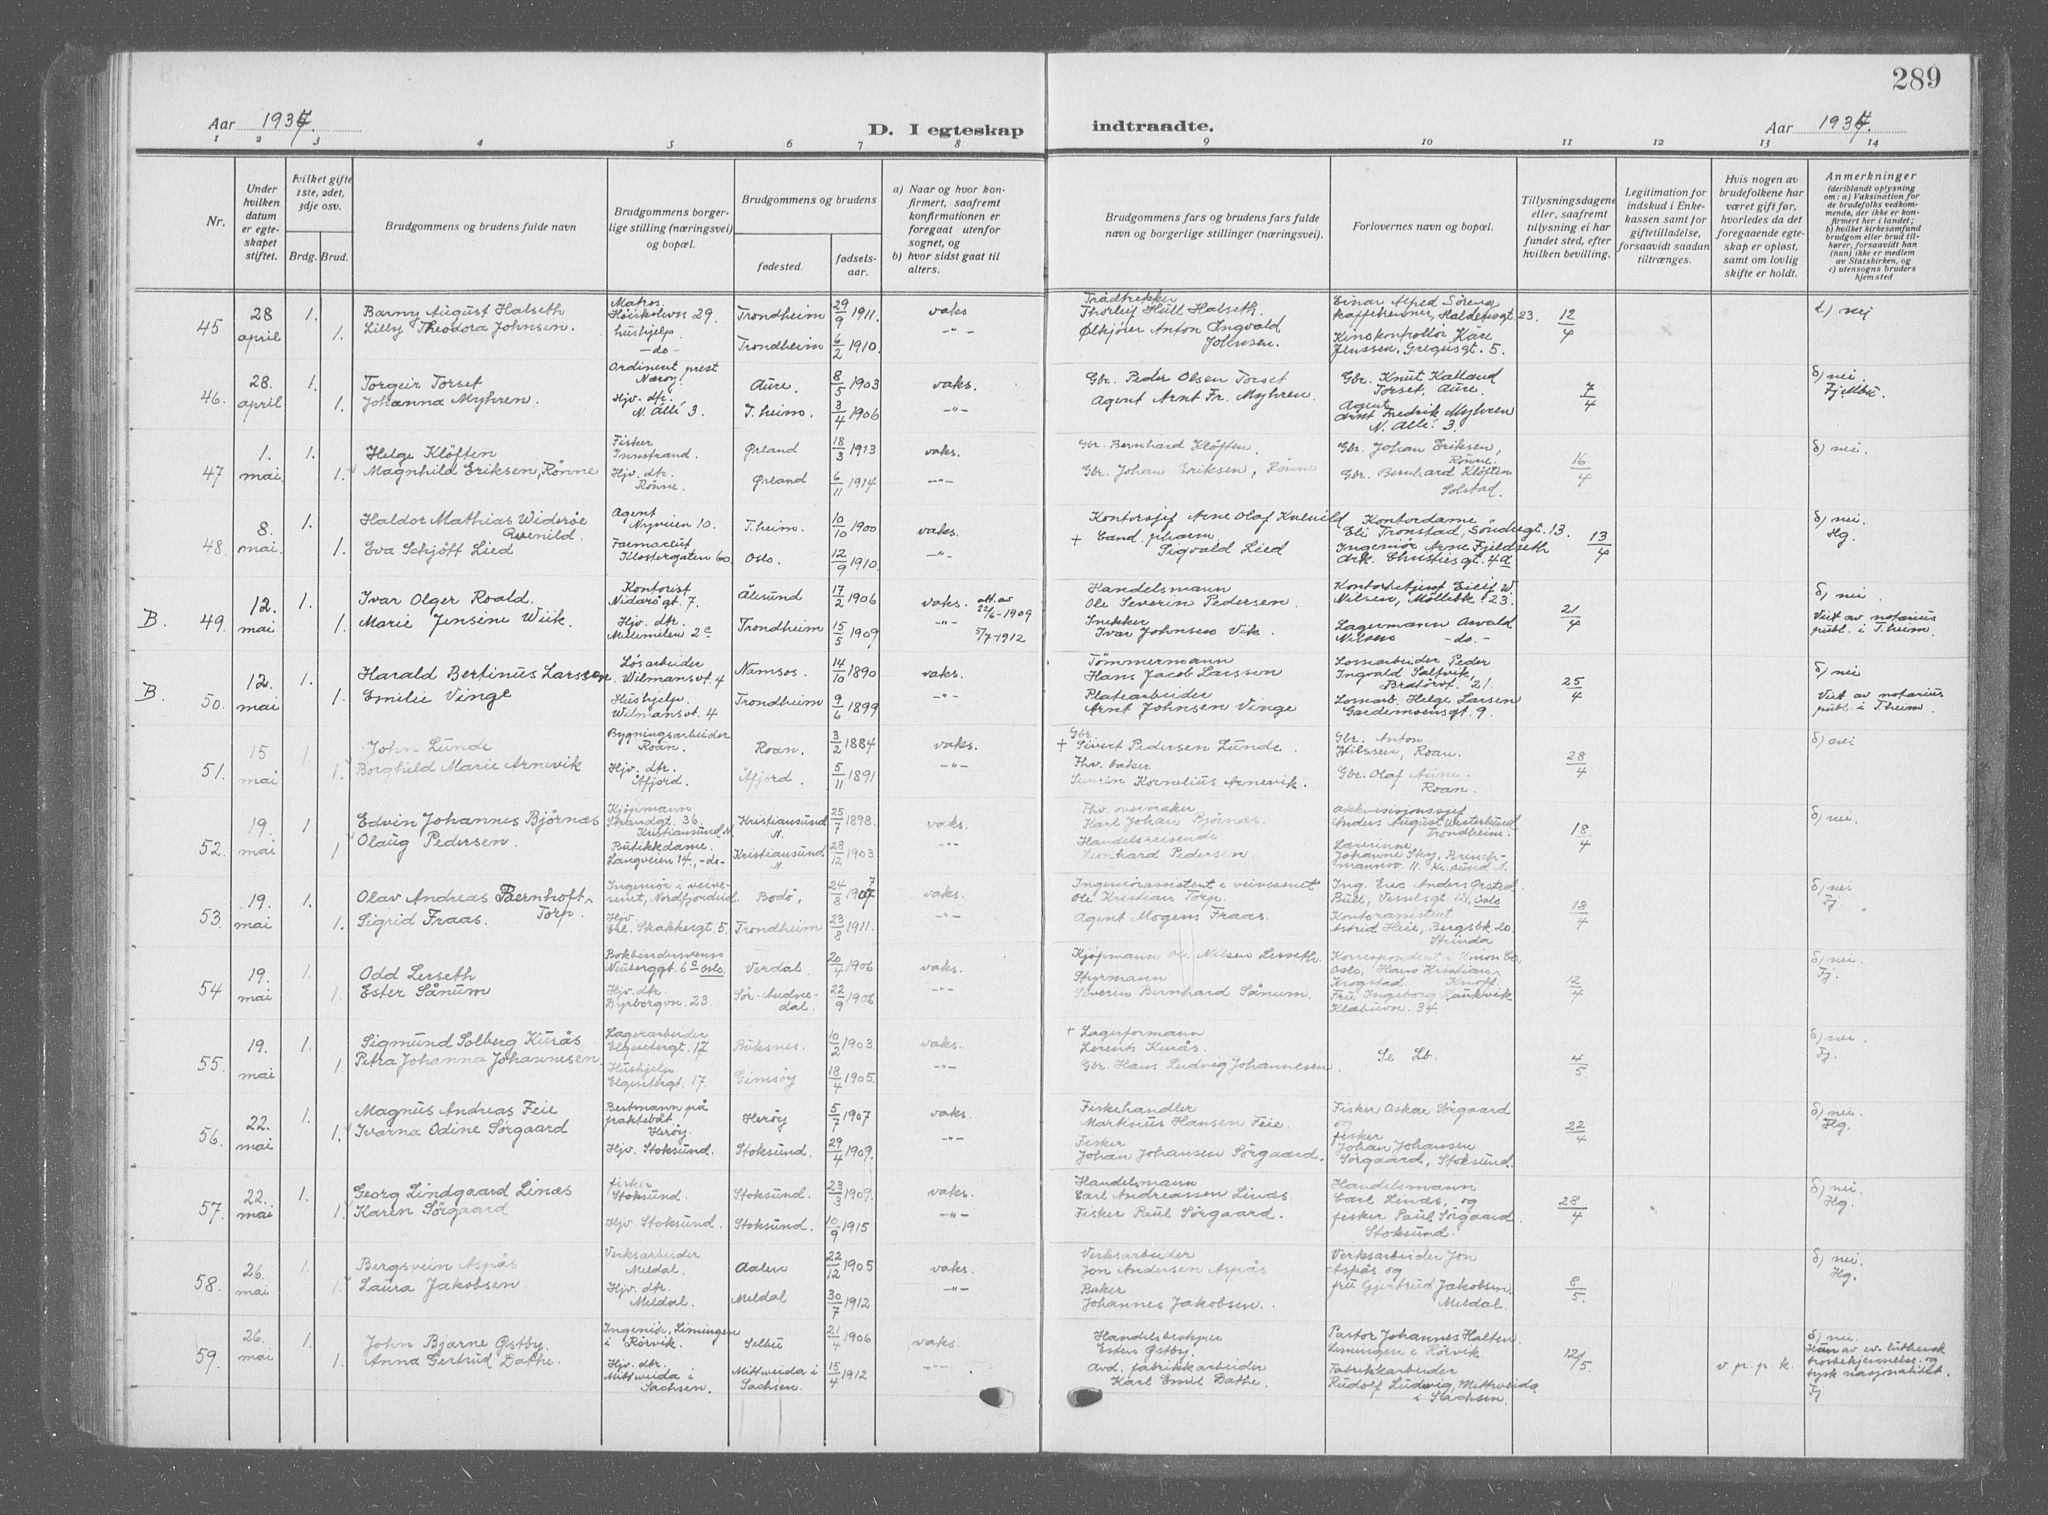 289
Aar 1937.
D. I egteskap indtraadte.
Aar 1937.
1 2 3 4 5 6 7 8 9 10 11 12 13 14
Nr.
Under hvilken datum er egteskapet stiftet.
Hvilket gifte 1ste, 2det, 3dje osv.
Brdg. Brud.
Brudgommens og brudens fulde navn
Brudgommens borgerlige stilling (næringsvei) og bopæl.
Brudgommens og brudens
fødested. fødselsaar.
a) Naar og hvor konfirmert, saafremt konfirmationen er foregaat utenfor sognet, og
b) hvor sidst gaat til alters.
Brudgommens fars og brudens fars fulde navn og borgerlige stillinger (næringsvei).
Forlovernes navn og bopæl.
Tillysningsdagene eller, saafremt tillysning ei har fundet sted, efter hvilken bevilling.
Legitimation for indskud i Enkekassen samt for giftetilladelse, forsaavidt saadan tiltrænges.
Hvis nogen av brudefolkene har været gift før, hvorledes da det foregaaende egteskap er opløst, samt om lovlig skifte er holdt.
Anmerkninger
(deriblandt oplysning om: a) Vaksination for de brudefolks vedkommende, der ikke er konfirmert her i landet; b) hvilket kirkesamfund brudgom eller brud tilhører, forsaavidt han (hun) ikke er medlem av Statskirken, og c) utensogns bruders hjemsted
45 28 april 1. Barny August Halseth Matros. 29. Trondheim 29/9 1911. vaks Trådtrekker Thorleif Hull Halseth. Einar Alfred Søreng 23. 12/4 b) nei
1. Lilly Theodora Johnsen. hushjelp -do- Trondheim 6/2 1910. -"- Ølkjører Anton Ingvald Johnsen. Kinokontrollør Kåre Jenssen, Gregusgt. 5.
46. 28. april 1. Torgeir Torset Ordinert prest Nærøy. Aure. 8/5 1903 vaks. Gbr. Peder Olsen Torset Gbr. Knut Kalland Torset, Aure. 7/4 b) nei. Fjeldbu.
1. Johanna Myhren. Hjv. dtr. N. Allé 3. T.heim. 3/4 1906 -"- Agent Arnt Fr. Myhren. Agent Arnt Fredrik Myhren N. Allé. 3.
47 1. mai 1. Helge Kløften Fisker Innstrand. Ørland 18/3 1913 vaks. Gbr. Bernhard Kløften. Gbr. Johan Eriksen, Rønne. 16/4 b) nei.
1. Magnhild Eriksen, Rønne Hjv. dtr. Rønne. Ørland 6/11 1914 -"- Gbr. Johan Eriksen, Rønne Gbr. Bernhard Kløften Solstad.
48. 8. mai. 1. Haldor Mathias Widerøe Qvenild. Agent Nyveien 10. T.heim. 10/10 1900 vaks. Kontorsjef Arne Olaf Kvenild Kontordame Eli Tronstad, Söndregt. 13. 13/4 b) nei. Hg.
1. Eva Schjøtt Lied Farmaceut Klostergaten 60. Oslo. 12/9 1910. -"- + Cand. pharm Sigvald Lied Ingeniør Arne Fjeldseth ark. Christiesgt. 4a
B. 49. 12. mai 1. Ivar Olger Roald. Kontorist Nidarøgt. 7. Ålesund 17/2 1906 vaks. att. av 22/6-1909 Handelsmann Ole Severin Pedersen. Eilif W. Nilsen, Møllebk. 23. 21/4 b) nei. Viet av notarius publ. i T.heim.
1. Marie Jensine Wiik. Hjv. dtr. Mellemilen 2c Trondheim 15/5 1909 -"- 5/7-1912 Snekker Ivar Johnsen Vik. Lagermann Osvald Nilsen -do-
B 50. 12. mai 1. Harald Bertinus Larssen Løsarbeider Wilmansvt. 4 Namsos. 14/10 1890 vaks. Tømmermann Hans Jacob Larssen Lossearbeider Peder Ingvald Saltvik, 21. 25/4 b) nei Viet av notarius publ. i T.heim.
1. Emilie Vinge Hushjelp Wilmansvt. 4 Trondheim 9/6 1899 -"- Platearbeider Arnt Johnsen Vinge Lossarb. Helge Larsen Gardemoensgt. 9.
51. 15 mai 1 John Lunde Bygningsarbeider Roan. Roan. 3/2 1884 vaks. + Gbr. Sivert Pedersen Lunde. Gbr. Anton Nilssen, Roan. 28/4 b) nei
1. Borghild Marie Arnevik Hjv. dtr. Åfjord. Åfjord. 5/11 1891 -"- Fhv. baker Severin Kornelius Arnevik. Gbr. Olaf Aune. Roan.
52. 19. mai 1 Edvin Johannes Bjørnæs Kjøpmann Strandgt. 36. Kristiansund N. Kristiansund N. 25/7 1898. vaks. Fhv. Karl Johan Bjørnæs. Anders August Westerlund Trondheim. 18/4 b) nei.
1 Olaug Pedersen. Butikkdame. Langveien 14, -do- Kristiansund N. 28/12 1903. -"- Handelsreisende Leonhard Pedersen. Lærerinne Johanne Sky, 11. Kr.sund N.
53. 19. mai 1. Olav Andreas Bernhoft-Torp. Ingeniør i veivesenet, Nordfjordeid. Bodø, 24/8 1907 vaks. Ingeniørassistent i veivesenet Ole Kristian Torp. Ing. Eric Anders Ørsted Oslo 18/4 b) nei Fj.
1. Sigrid Fraas. Hjv. Erl. Skakkesgt. 5. Trondheim 23/8 1911. -"- Agent Mogens Fraas. Kontorassistent Astrid Heie, Bergsbk. 20. Strinda
54 19. mai 1. Odd Lerseth Bokbindersvenn Neuberggt. 6c Oslo. Verdal. 20/4 1906 vaks. Kjøpmann Ole Nilsen Lerseth. Korrespondent i Union Co, Oslo, Hans Kristian Krogstad Knoff. 12/4 b) nei. Fj.
1. Ester Sånum Hjv. dtr. Dyrborgvn. 23. Sør-Audnedal. 22/9 1906 -"- Styrmann Severin Bernhard Sånum. Fru Ingeborg Klæbuvn. 34
55. 19. mai 1. Sigmund Solberg Kurås Lagerarbeider Elgesetergt. 17 Buksnes. 10/2 1903. vaks. + Lagerformann Lorents Kurås. Se Lb. 4/5 b) nei. Fj.
1. Petra Johanna Johannesen Hushjelp Elgesetergt. 17. Gimsøy 18/4 1905. -"- Gbr. Hans Ludvig Johannesen.
56. 22. mai 1. Magnus Andreas Feie Bestmann på fraktebåt. Herøy. Herøy 5/7 1907 vaks. Fiskehandler Martinus Hansen Feie. Fisker Oskar Sørgaard og 22/4 b) nei. Hg.
1. Ivarna Odine Sørgaard Hjv. Stoksund. Stoksund. 29/4 1909. -"- Fisker Johan Johansen Sørgaard. fisker Johan Johansen Sørgaard, Stoksund.
57. 22. mai 1. Georg Lindgaard Linæs fisker Stoksund. Stoksund. 23/3 1909. vaks. Handelsmann Carl Andreassen Linæs. Handelsmann Carl Linæs, og 28/4 b) nei. Hg.
1. Karen Sørgaard Hjv. Stoksund. Stoksund. 10/9 1915 -"- Fisker Paul Sørgaard. fisker Paul Sørgaard Stoksund.
58. 26. mai 1. Bergsvein Aspås Verksarbeider Meldal. Aalen 22/12 1905 vaks. Verksarbeider Jon Andersen Aspås Verksarbeider Jon Aspås og 8/5. b) nei. Hg.
1. Laura Jakobsen. Hjv. dtr. Meldal. Meldal 30/7 1912 -"- Baker Johannes Jakobsen. fru Gjertrud Jakobsen, Meldal.
59. 26. mai 1. John Bjarne Østby. Ingeniør, Limingen i Rørvik. Selbu 21/4 1906 vaks. Handelsbestyrer Esten Østby. Pastor Johannes Halten. Limingen i Rørvik. 12/5. v. p. p. k. b) nei. Hun av ev. luthersk trosbekjennelse og tysk nasjonalitet. Fj
1. Anna Gertrud Dathe. Hjv. dtr. Mittweida i Sachsen. Mittweida i Sachsen. 15/4 1912 -"- Avd. fabrikkarbeider Karl Emil Dathe. Fabrikkarbeider Rudolf Ludwig, Mittweida i Sachsen.